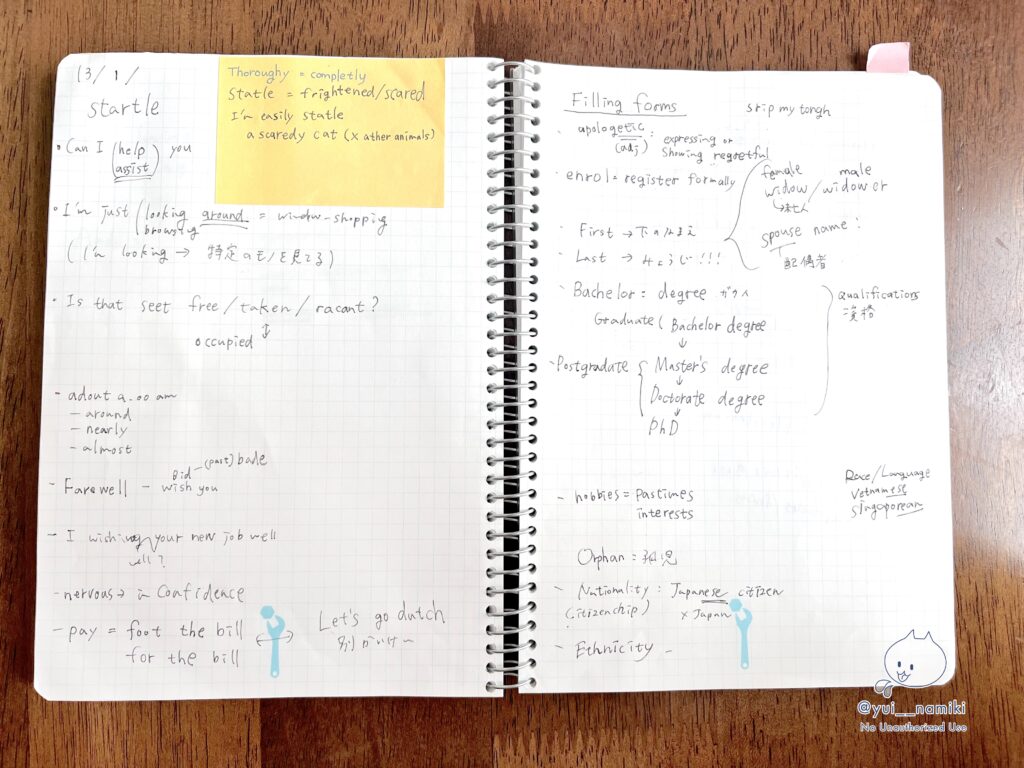 13/1/
startle
Thoroughy = completly
Statle = frightened/scared
I'm easily statle
a scaredy cat (x ather animals)
• Can I (help you
assist)
• I'm just (looking around = window-shopping
browsing
( I'm looking → 特定のモノを見てる)
• Is that seet free/taken/racant?
↕
occupied
- adout 9.00 am
- around
- nearly
- almost
- Farewell - Bid -(past) bade
wish you
- I wishing your new job well
well?
- nervous → in Confidence
- pay = foot the bill
for the bill
↔ Let's go dutch
別がいけー
Filling forms
srip my tongh
• apologetic : expressing or
(adj) showing regretful
• enrol = register formally
female male
widow / widower
→未亡人
spouse name :
配偶者
• First → 下のなまえ
Last → みょうじ!!!
• Bachelor = degree ガクイ
Graduate ( Bachelor degree
↓
- Postgraduate { Master's degree
↓
Doctorate degree
↓
PhD
Qualifications
- hobbies = Pastimes
interests
Race/Language
Vetnamese
Singaporean
Orphan = 孤児
- Nationality : Japanese citizen
(citizenchip) × Japan
- Ethnicity -
@yui__namiki
No Unauthorized Use